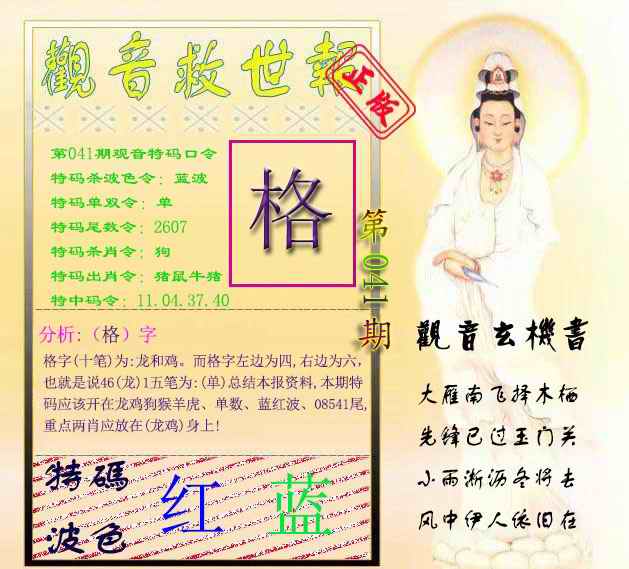 觀音救世報
正版
第041期观音特码口令
特码杀波色令：蓝波
特码单双令：单
特码尾数令：2607
特码杀肖令：狗
特码出肖令：猪鼠牛猪
特中码令：11.04.37.40
格
第041期
分析:（格）字
格字(十笔)为:龙和鸡。而格字左边为四,右边为六，
也就是说46(龙)1五笔为:(单)总结本报资料,本期特
码应该开在龙鸡狗猴羊虎、单数、蓝红波、08541尾,
重点两肖应放在(龙鸡)身上!
特碼
波色
红 蓝
觀音玄機書
大雁南飞择木栖
先锋已过玉门关
小雨淅沥冬将去
风中伊人依旧在